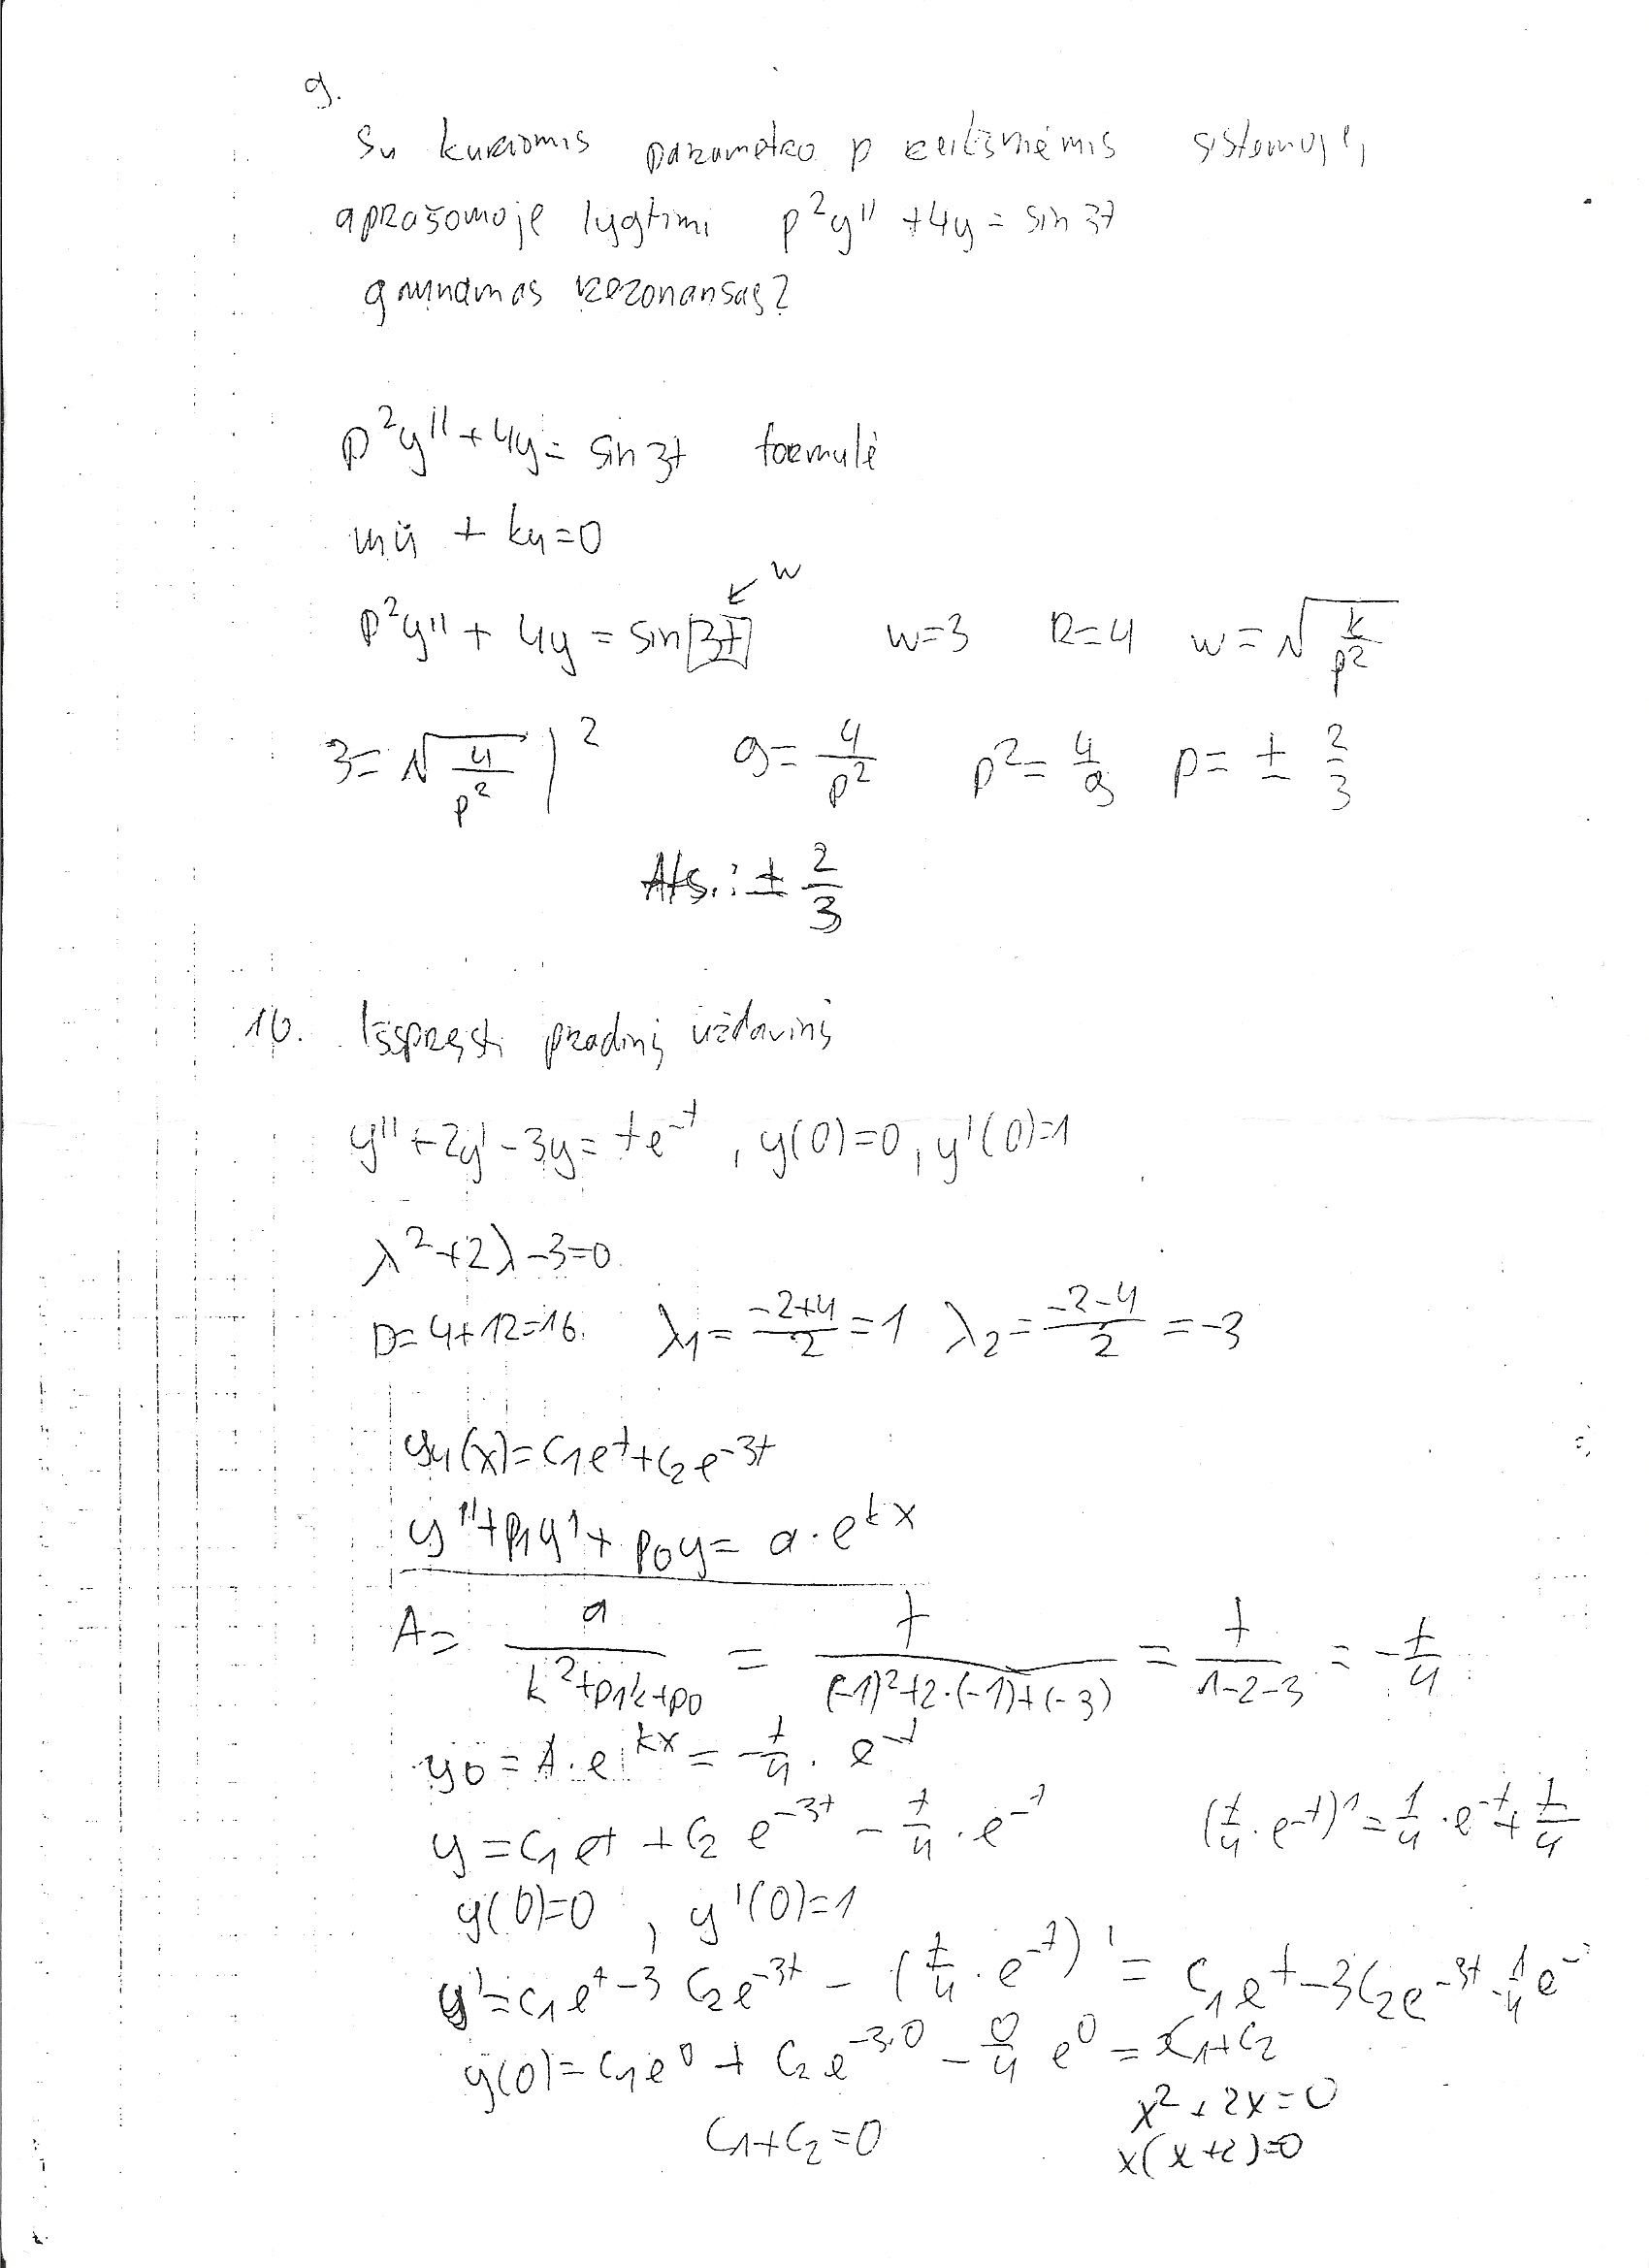 9.
Su kuriomis parametro p reikšmėmis sistemoje,
aprašomoje lygtimi p²y'' + 4y = sin 3t
gaunamas rezonansas?
p²y'' + 4y = sin 3t formulė
mü + ku = 0
w
p²y'' + 4y = sin 3t w=3 k=4 w = √(k/p²)
3 = √(4/p²) |² 9 = 4/p² p² = 4/9 p = ± 2/3
Ats.: ± 2/3
10. Išspręsti pradinį uždavinį
y'' + 2y' - 3y = te^(-t), y(0)=0, y'(0)=1
λ² + 2λ - 3 = 0
D = 4+12 = 16. λ₁ = (-2+4)/2 = 1 λ₂ = (-2-4)/2 = -3
(x) = c₁e^t + c₂e^(-3t)
y'' + p₁y' + p₀y = a · e^(kx)
A = a/(k²+p₁k+p₀) = t/((-1)²+2·(-1)+(-3)) = t/(1-2-3) = -t/4
y₀ = A · e^(kx) = -t/4 · e^(-t)
y = c₁e^t + c₂ e^(-3t) - t/4 · e^(-t) (t/4 · e^(-t))' = 1/4 · e^(-t) + t/4
y(0)=0, y'(0)=1
y' = c₁e^t - 3c₂e^(-3t) - (t/4 · e^(-t))' = c₁e^t - 3c₂e^(-3t) - 1/4 e^-
y(0) = c₁e⁰ + c₂e^(-3·0) - 0/4 e⁰ = c₁+c₂
x² + 2x = 0
c₁+c₂=0 x(x+2)=0